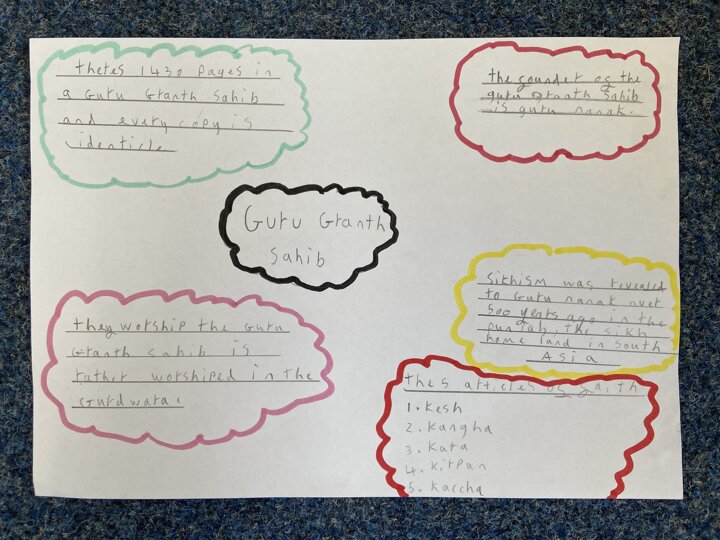 thetes 1430 pages in
a Guru Granth Sahib
and every copy is
identicle
the founder of the
guru Granth Sahib
is guru nanak.
Guru Granth
Sahib
Sikhism was revealed
to Guru nanak over
500 years ago in the
punjab, the sikh
home land in South
Asia
they worship the Guru
Granth sahib is
rather worshiped in the
Gurdwara.
thes articles of faith
1. Kesh
2. Kangha
3. Kara
4. Kirpan
5. Kaccha